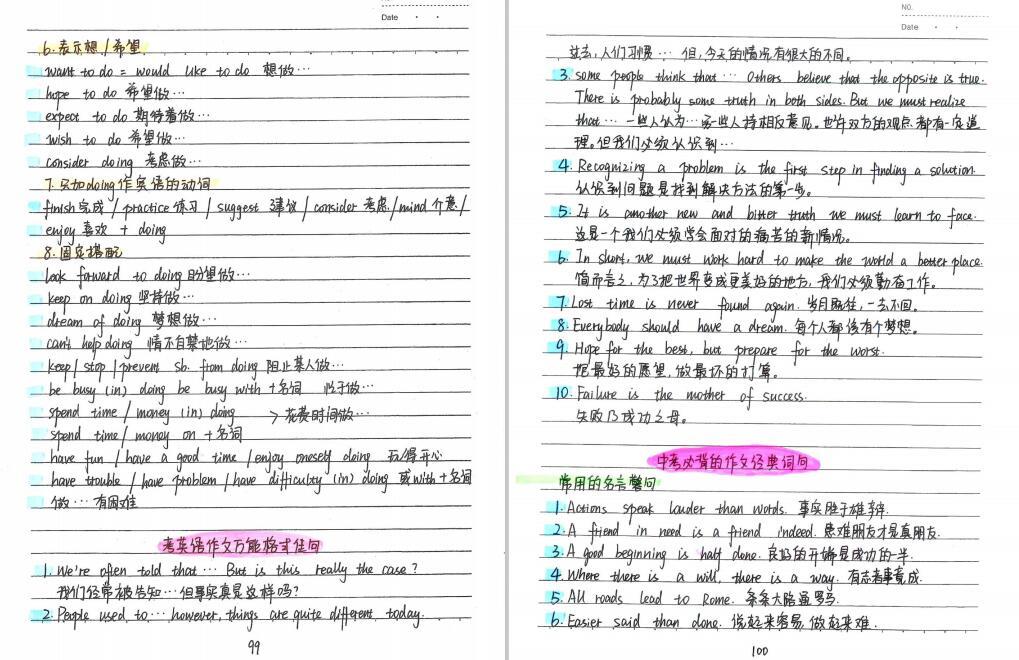 Date
6. 表示想/希望
want to do = would like to do 想做…
hope to do 希望做…
expect to do 期待着做…
wish to do 希望做…
consider doing 考虑做…
7. 只加doing作宾语的动词
finish 完成 / practice 练习 / suggest 建议 / consider 考虑 / mind 介意 /
enjoy 喜欢 + doing
8. 固定搭配
look forward to doing 盼望做…
keep on doing 坚持做…
dream of doing 梦想做…
can't help doing 情不自禁地做…
keep / stop / prevent sb. from doing 阻止某人做…
be busy (in) doing be busy with +名词 忙于做…
spend time / money (in) doing > 花费时间做…
spend time / money on +名词
have fun / have a good time / enjoy oneself doing 玩得开心
have trouble / have problem / have difficulty (in) doing 或with +名词
做…有困难
考英语作文万能格式佳句
1. We're often told that … But is this really the case?
我们经常被告知…但事实真是这样吗?
2. People used to … however, things are quite different today.
99
NO.
Date
过去,人们习惯… 但,今天的情况有很大的不同。
3. some people think that … Others believe that the opposite is true.
There is probably some truth in both sides. But we must realize
that … 一些人认为…另一些人持相反意见。也许双方的观点都有一定道
理。但我们必须认识到…
4. Recognizing a problem is the first step in finding a solution.
认识到问题是找到解决方法的第一步。
5. It is another new and bitter truth we must learn to face.
这是一个我们必须学会面对的痛苦的新情况。
6. In short, we must work hard to make the world a better place.
简而言之,为了把世界变成更美好的地方,我们必须勤奋工作。
7. Lost time is never found again. 岁月既往,一去不回。
8. Everybody should have a dream. 每个人都该有个梦想。
9. Hope for the best, but prepare for the worst.
抱最好的愿望,做最坏的打算。
10. Failure is the mother of success.
失败乃成功之母。
中考必背的作文经典词句
常用的名言警句
1. Actions speak louder than words. 事实胜于雄辩.
2. A friend in need is a friend indeed. 患难朋友才是真朋友.
3. A good beginning is half done. 良好的开端是成功的一半.
4. Where there is a will, there is a way. 有志者事竟成.
5. All roads lead to Rome. 条条大路通罗马.
6. Easier said than done. 说起来容易,做起来难.
100